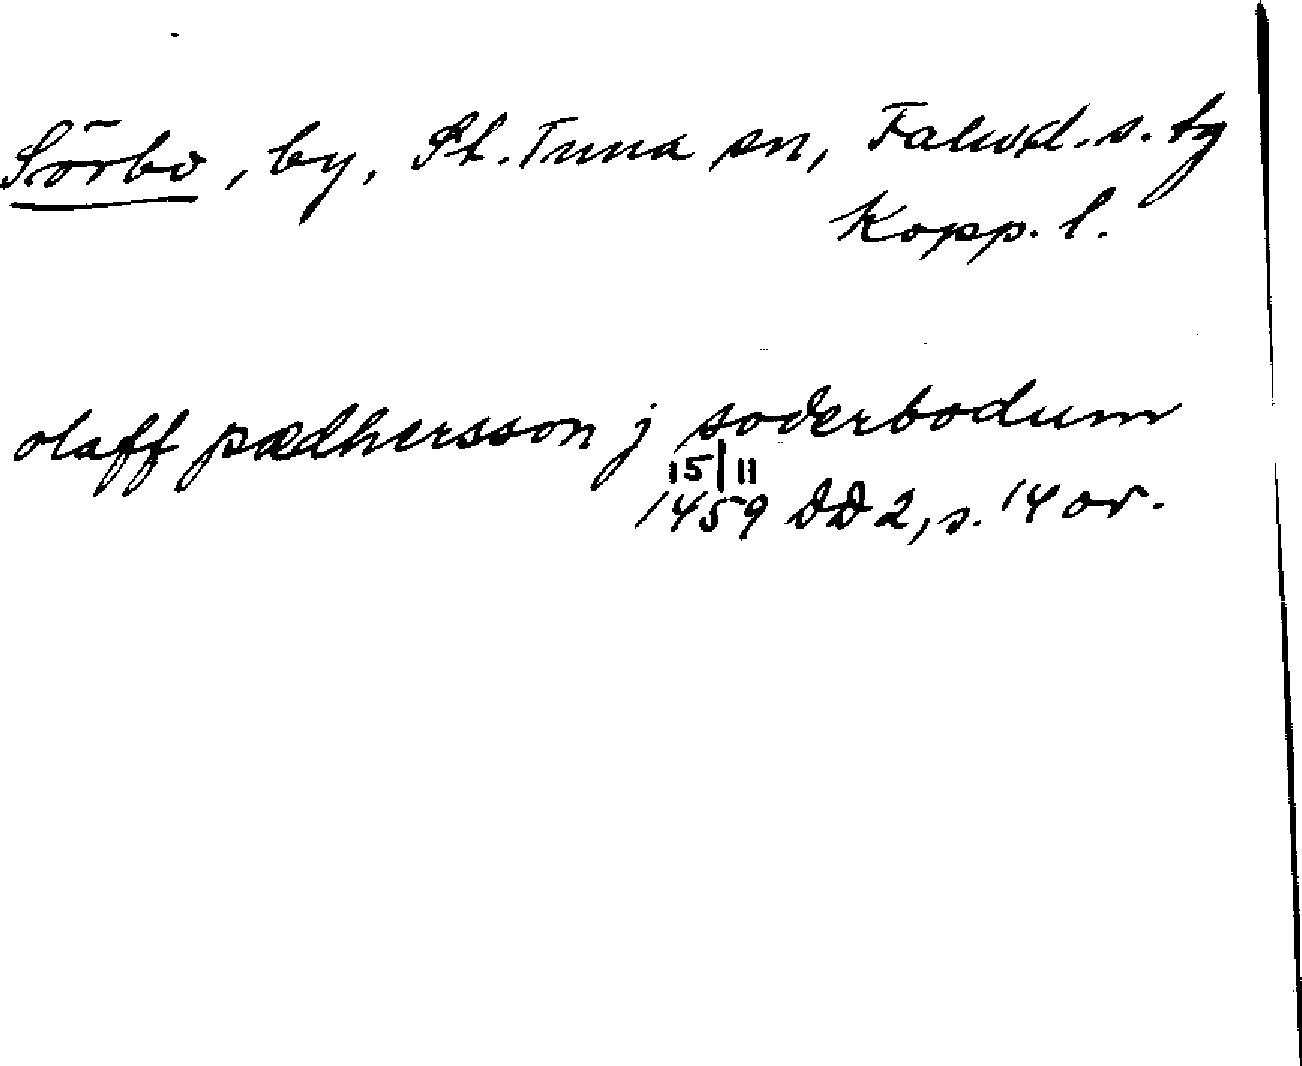 Sörbo, by, St. Tuna sn, Falu d. s. tg
Kopp. l.
olaff pædhersson j soderbodum
15/11
1459 DD 2, s. 14 or.